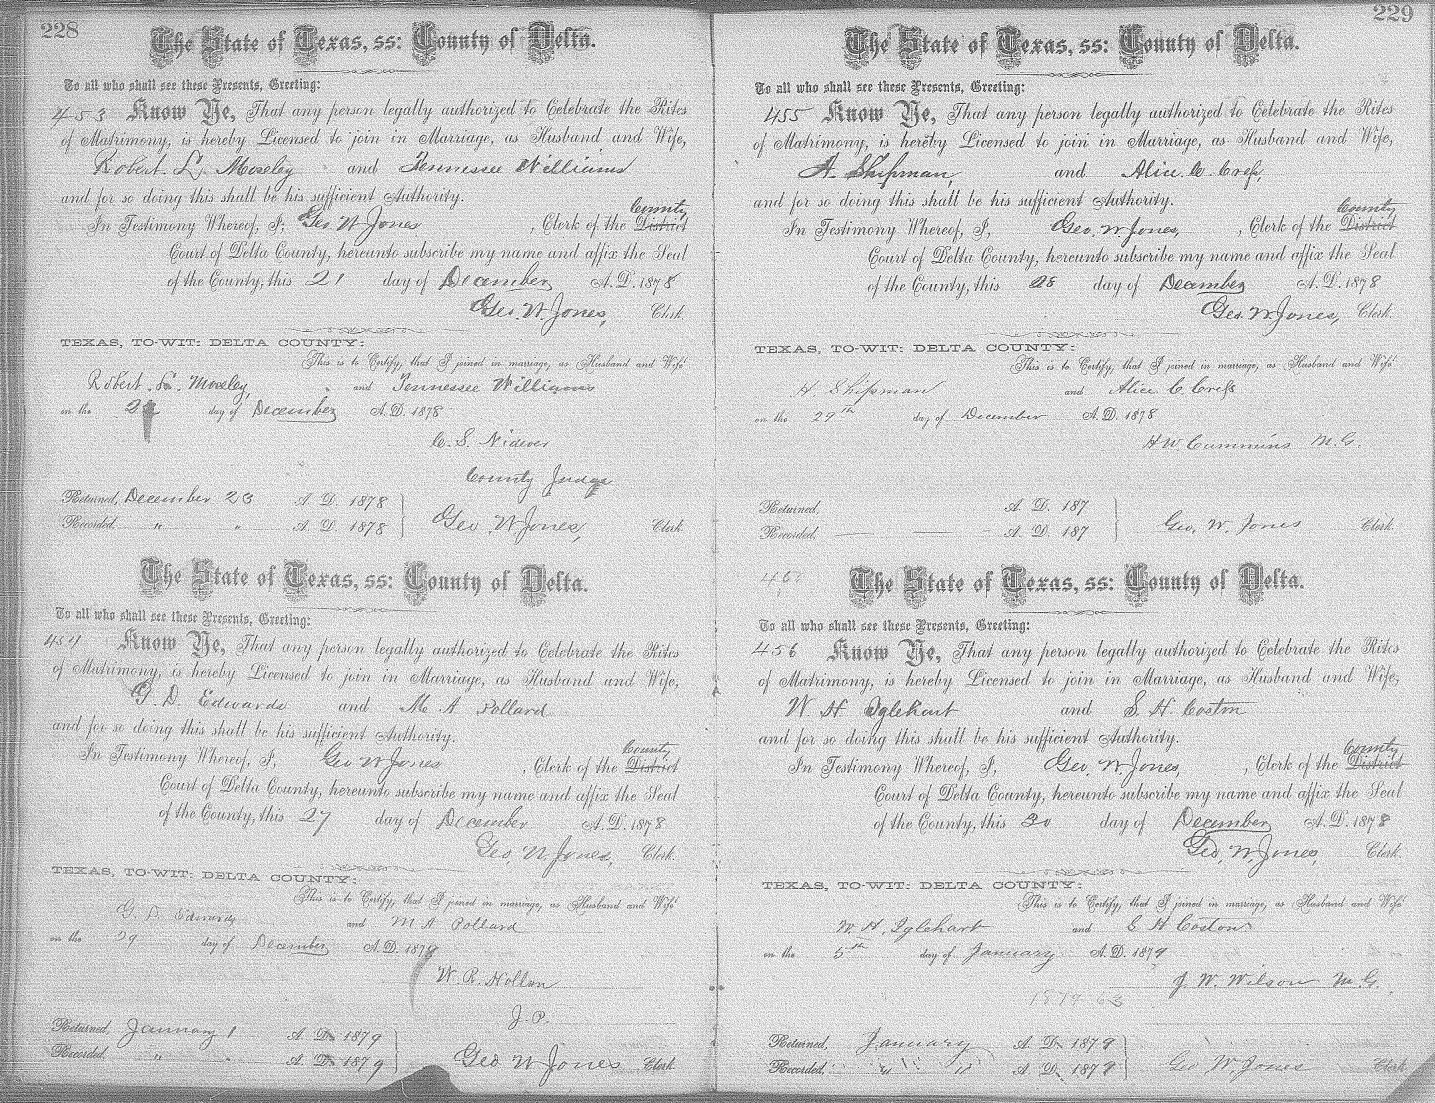 228
The State of Texas, ss: County of Delta.
To all who shall see these Presents, Greeting:
453 Know Ye, That any person legally authorized to Celebrate the Rites
of Matrimony, is hereby Licensed to join in Marriage, as Husband and Wife,
Robert L. Moseley and Tennessee Williams
and for so doing this shall be his sufficient Authority.
County
In Testimony Whereof, I, Geo W Jones, Clerk of the District
Court of Delta County, hereunto subscribe my name and affix the Seal
of the County, this 21 day of December A.D. 1878
Geo. W. Jones, Clerk.
TEXAS, TO-WIT: DELTA COUNTY:
This is to Certify, that I joined in marriage, as Husband and Wife
Robert L. Moseley, and Tennessee Williams
on the day of December A.D. 1878
C. S. Nidever
County Judge
Returned, December 23 A. D. 1878
Recorded " " A. D. 1878
Geo W Jones, Clerk
The State of Texas, ss: County of Delta.
To all who shall see these Presents, Greeting:
454 Know Ye, That any person legally authorized to Celebrate the Rites
of Matrimony, is hereby Licensed to join in Marriage, as Husband and Wife,
G. D. Edwards and M A Pollard
and for so doing this shall be his sufficient Authority.
County
In Testimony Whereof, I, Geo W Jones, Clerk of the District
Court of Delta County, hereunto subscribe my name and affix the Seal
of the County, this 27 day of December A.D. 1878
Geo. W. Jones, Clerk.
TEXAS, TO-WIT: DELTA COUNTY:
This is to Certify, that I joined in marriage, as Husband and Wife
G. D Edwards and M A Pollard
on the 29 day of December A.D. 1878
W. R. Hollon
J. P.
Returned, January 1 A. D. 1879
Recorded, " " A. D. 1879
Geo W Jones Clerk
229
The State of Texas, ss: County of Delta.
To all who shall see these Presents, Greeting:
455 Know Ye, That any person legally authorized to Celebrate the Rites
of Matrimony, is hereby Licensed to join in Marriage, as Husband and Wife,
Shipman, and Alice C. Cress,
and for so doing this shall be his sufficient Authority.
County
In Testimony Whereof, I, Geo. W. Jones, Clerk of the District
Court of Delta County, hereunto subscribe my name and affix the Seal
of the County, this 28 day of December A.D. 1878
Geo. W Jones, Clerk.
TEXAS, TO-WIT: DELTA COUNTY:
This is to Certify, that I joined in marriage, as Husband and Wife
H Shipman and Alice C. Cress
on the 29th day of December A.D. 1878
H W Cummins M.G.
Returned, A. D. 187
Recorded, A. D. 187
Geo. W. Jones Clerk.
The State of Texas, ss: County of Delta.
To all who shall see these Presents, Greeting:
456 Know Ye, That any person legally authorized to Celebrate the Rites
of Matrimony, is hereby Licensed to join in Marriage, as Husband and Wife,
W H Iglehart and S. H Coston
and for so doing this shall be his sufficient Authority.
County
In Testimony Whereof, I, Geo. W. Jones, Clerk of the District
Court of Delta County, hereunto subscribe my name and affix the Seal
of the County, this 30 day of December A.D. 1878
Geo. W. Jones, Clerk.
TEXAS, TO-WIT: DELTA COUNTY:
This is to Certify, that I joined in marriage, as Husband and Wife
W H. Iglehart and H Coston
on the 5th day of January A.D. 1879
J. W. Wilson M. G.
Returned, January A. D. 1879
Recorded, " " A. D. 1879
Geo W. Jones Clerk